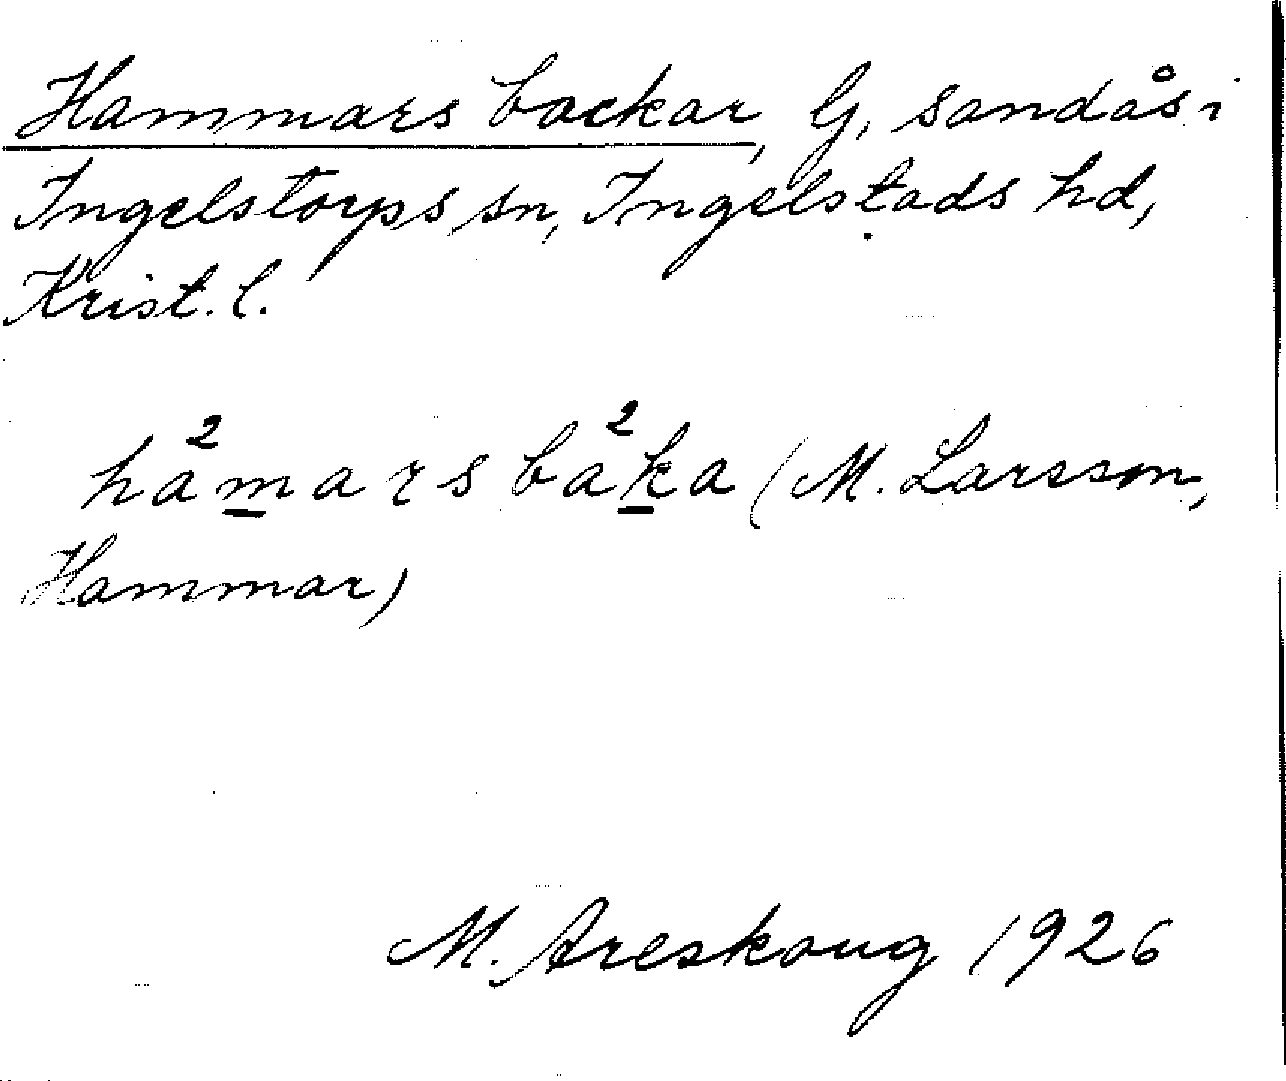 Hammars backar, G, sandås i
Ingelstorps sn, Ingelstads hd,
Krist. l.
ha²mars ba²ka (M. Larsson,
Hammar)
M. Areskoug 1926